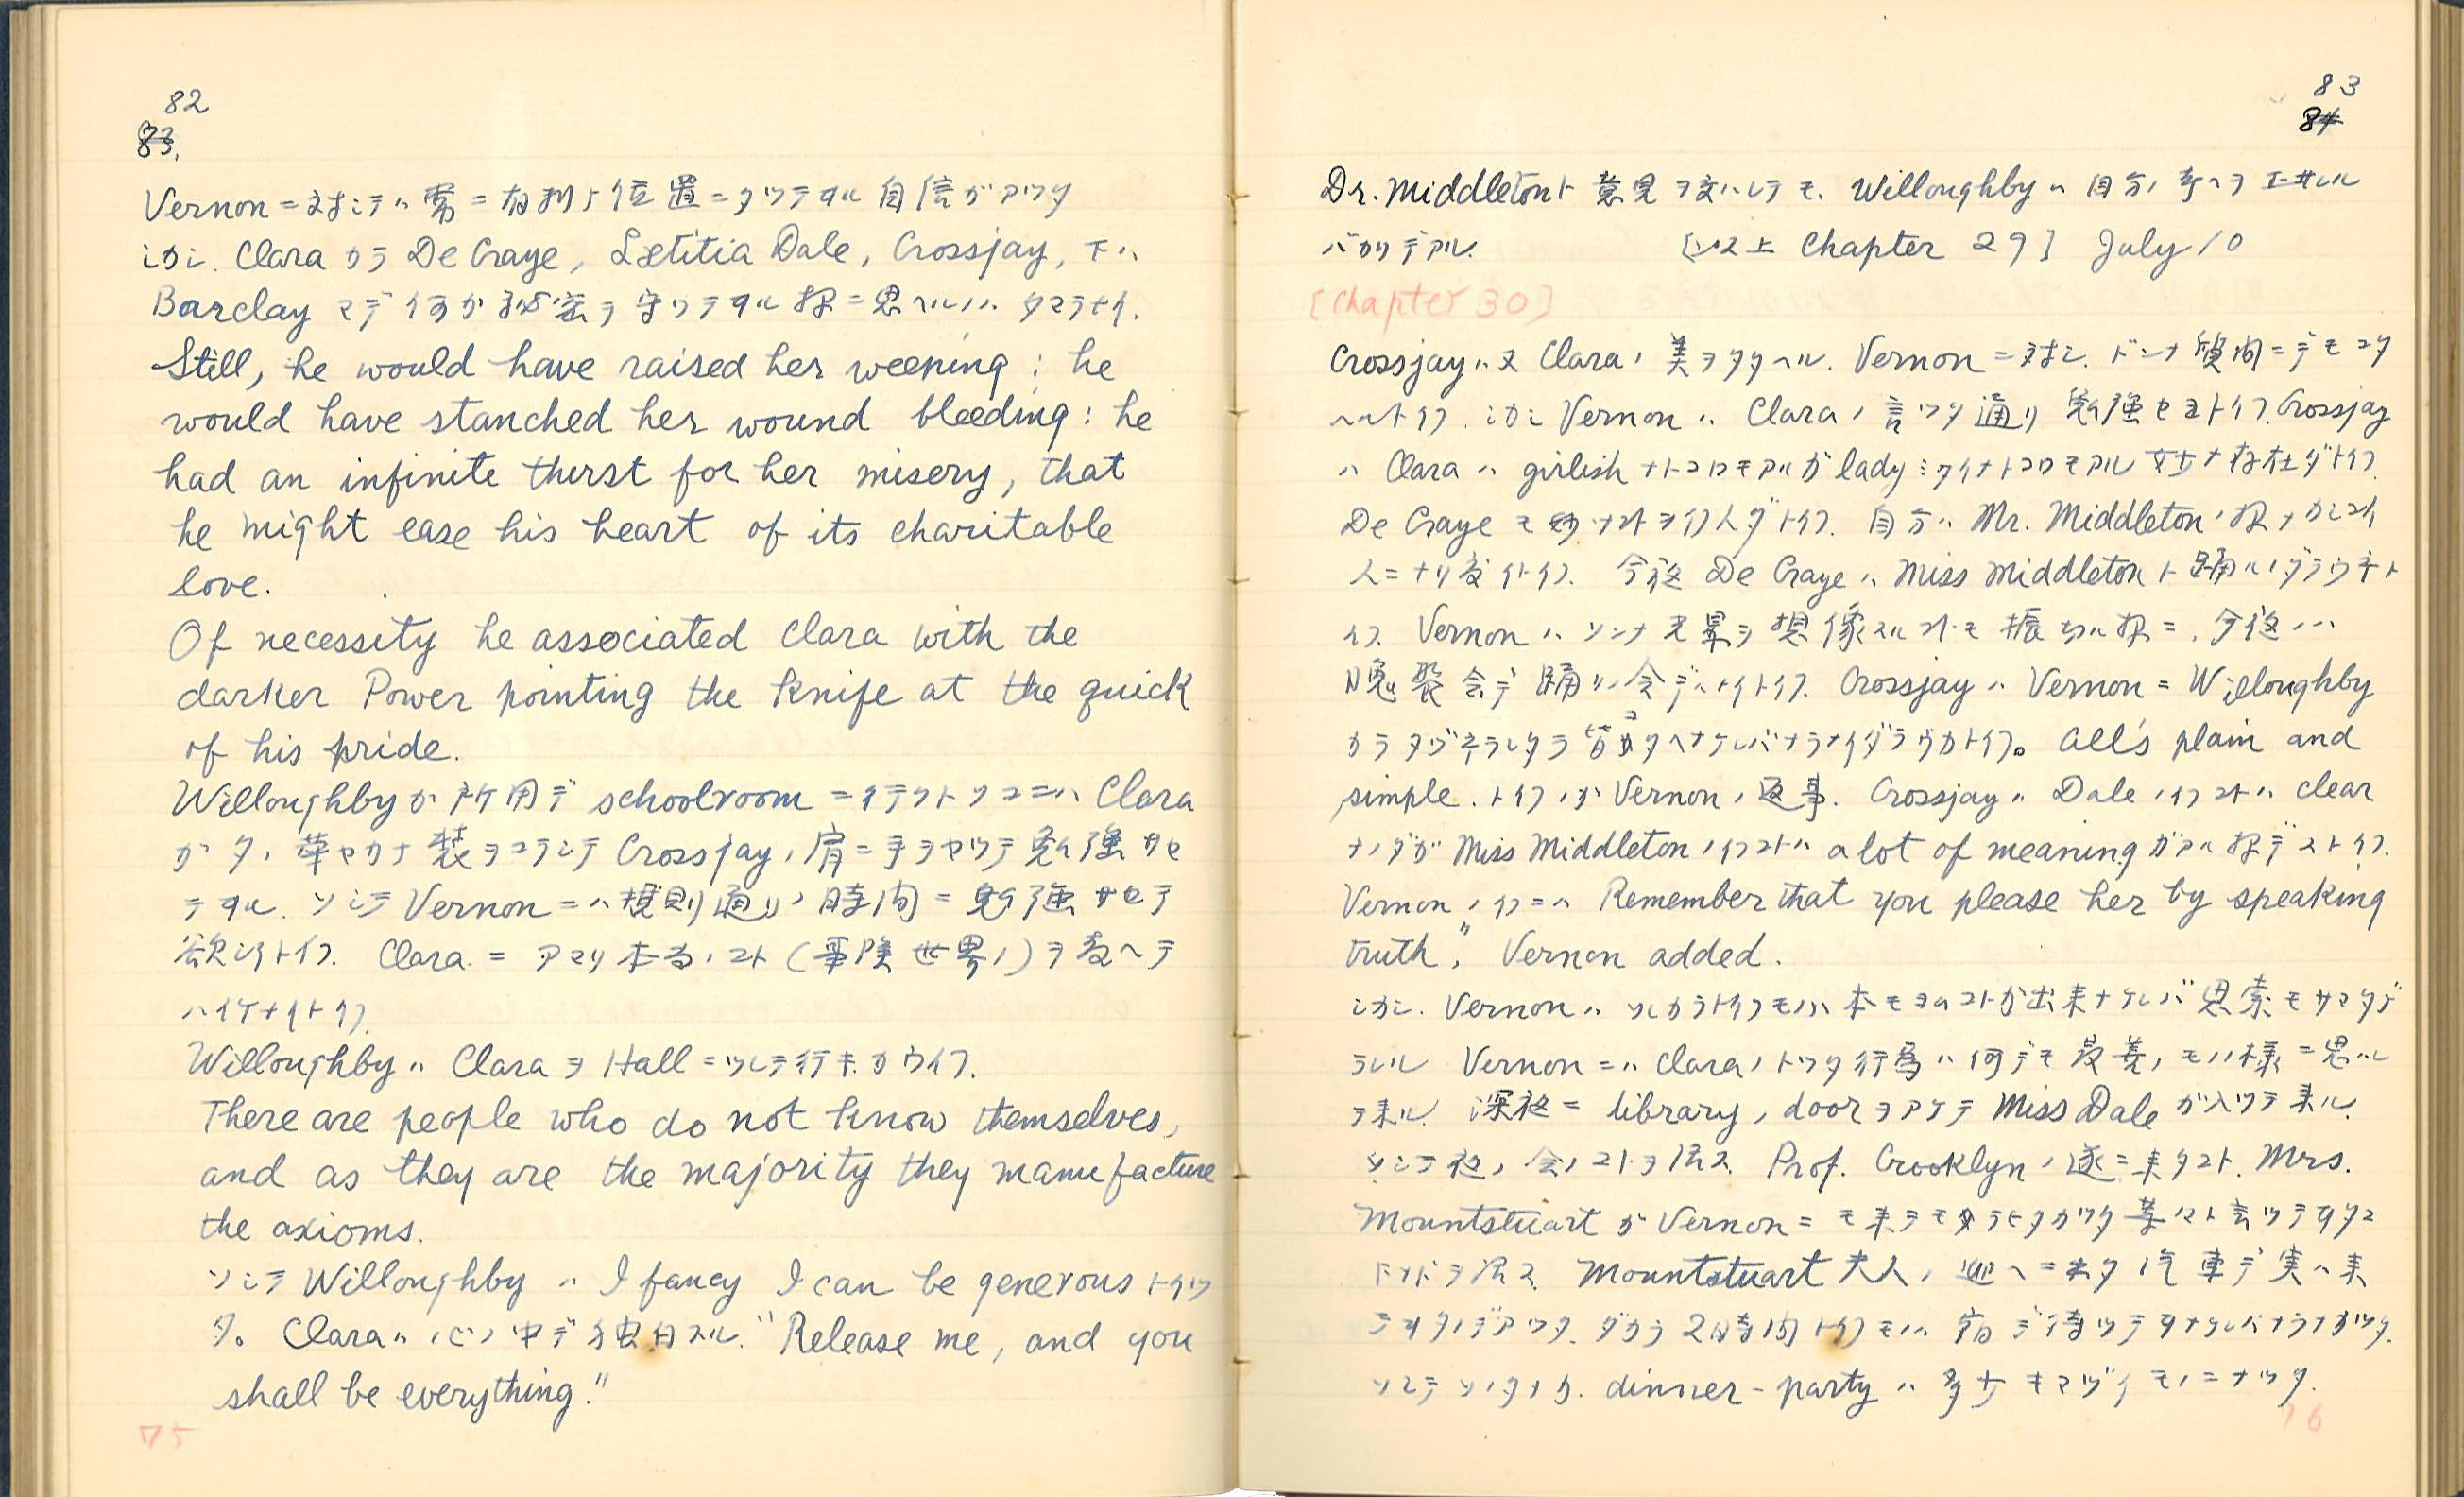 82
83.
Vernon ニ対シテハ常ニ有利ナ位置ニタツテヰル自信ガアツタ
シカシ. Clara カラ De Craye, Lætitia Dale, Crossjay, 下ハ
Barclay マデ何カ秘密ヲ守ツテヰル様ニ思ヘルノハ タマラナイ.
Still, he would have raised her weeping : he
would have stanched her wound bleeding : he
had an infinite thirst for her misery, that
he might ease his heart of its charitable
love.
Of necessity he associated Clara with the
darker Power pointing the knife at the quick
of his pride.
Willoughby ガ所用デ schoolroom ニイテ ソコニハ Clara
ガヰタ. 華ヤカナ装ヲコラシテ Crossjay ノ肩ニ手ヲヤツテ勉強サセ
テヰル. ソシテ Vernon ニハ規則通リノ時間ニ勉強サセテ
欲シイトイフ. Clara ニアマリ本当ノコト (軍隊世界ノ) ヲ教ヘテ
ハイケナイトイフ.
Willoughby ハ Clara ヲ Hall ニツレテ行キカウイフ.
There are people who do not know themselves,
and as they are the majority they manufacture
the axioms.
ソシテ Willoughby ハ I fancy I can be generous トイツ
タ。 Clara ハ心ノ中デ独白スル. "Release me, and you
shall be everything."
75
83
84
Dr. Middleton ト意見ヲ交ハシテモ. Willoughby ハ自分ノ考ヘヲ
バカリデアル. [以上 Chapter 29] July 10
[Chapter 30]
Crossjay ハ又 Clara ノ美ヲタタヘル. Vernon ニ対シ. ドンナ質問ニデモコタ
ヘルトイフ. シカシ Vernon ハ Clara ノ言ツタ通リ勉強セヨトイフ. Crossjay
ハ Clara ハ girlish ナトコロモアルガ lady ミタイナトコロモアル 妙ナ存在ダトイフ.
De Craye モ妙ナコトヲイフ人ダトイフ. 自分ハ Mr. Middleton ノ様ナカシコイ
人ニナリ度イトイフ. 今夜 De Craye ハ Miss Middleton ト踊ルノダラウネト
イフ. Vernon ハソンナ光景ヲ想像スルコトモ振切ル様ニ, 今夜ノハ
晩餐会デ踊リノ会デハナイトイフ. Crossjay ハ Vernon ニ Willoughby
カラタヅネラレタラ皆コタヘナケレバナラナイダラウカトイフ。 All's plain and
simple. トイフノガ Vernon ノ返事. Crossjay ハ Dale ノイフコトハ clear
ナノダガ Miss Middleton ノイフコトハ a lot of meaning ガアル様デストイフ.
Vernon ノイフニハ Remember that you please her by speaking
truth," Vernon added.
シカシ. Vernon ハソレカラトイフモノハ本モヨムコトガ出来ナケレバ思索モサマタゲ
ラレル Vernon ニハ Clara ノトツタ行為ハ何デモ最善ノモノノ様ニ思ハレ
テ来ル. 深夜ニ library ノ door ヲアケテ Miss Dale ガ入ツテ来ル.
ソシテ夜ノ会ノコトヲ話ス. Prof. Crooklyn ノ遂ニ来タコト. Mrs.
Mountstuart ガ Vernon ニモ来テモラヒタカツタ ト言ツテヰタコ
トナドヲ話ス. Mountstuart 夫人ノ迎ヘニ来タ汽車デ実ハ来
テヰタノデアツタ. ダカラ2時間トイフモノハ宿デ待ツテヰナケレバナラナカツタ.
ソシテソノタメカ. dinner-party ハ多少キマヅイモノニナツタ.
76